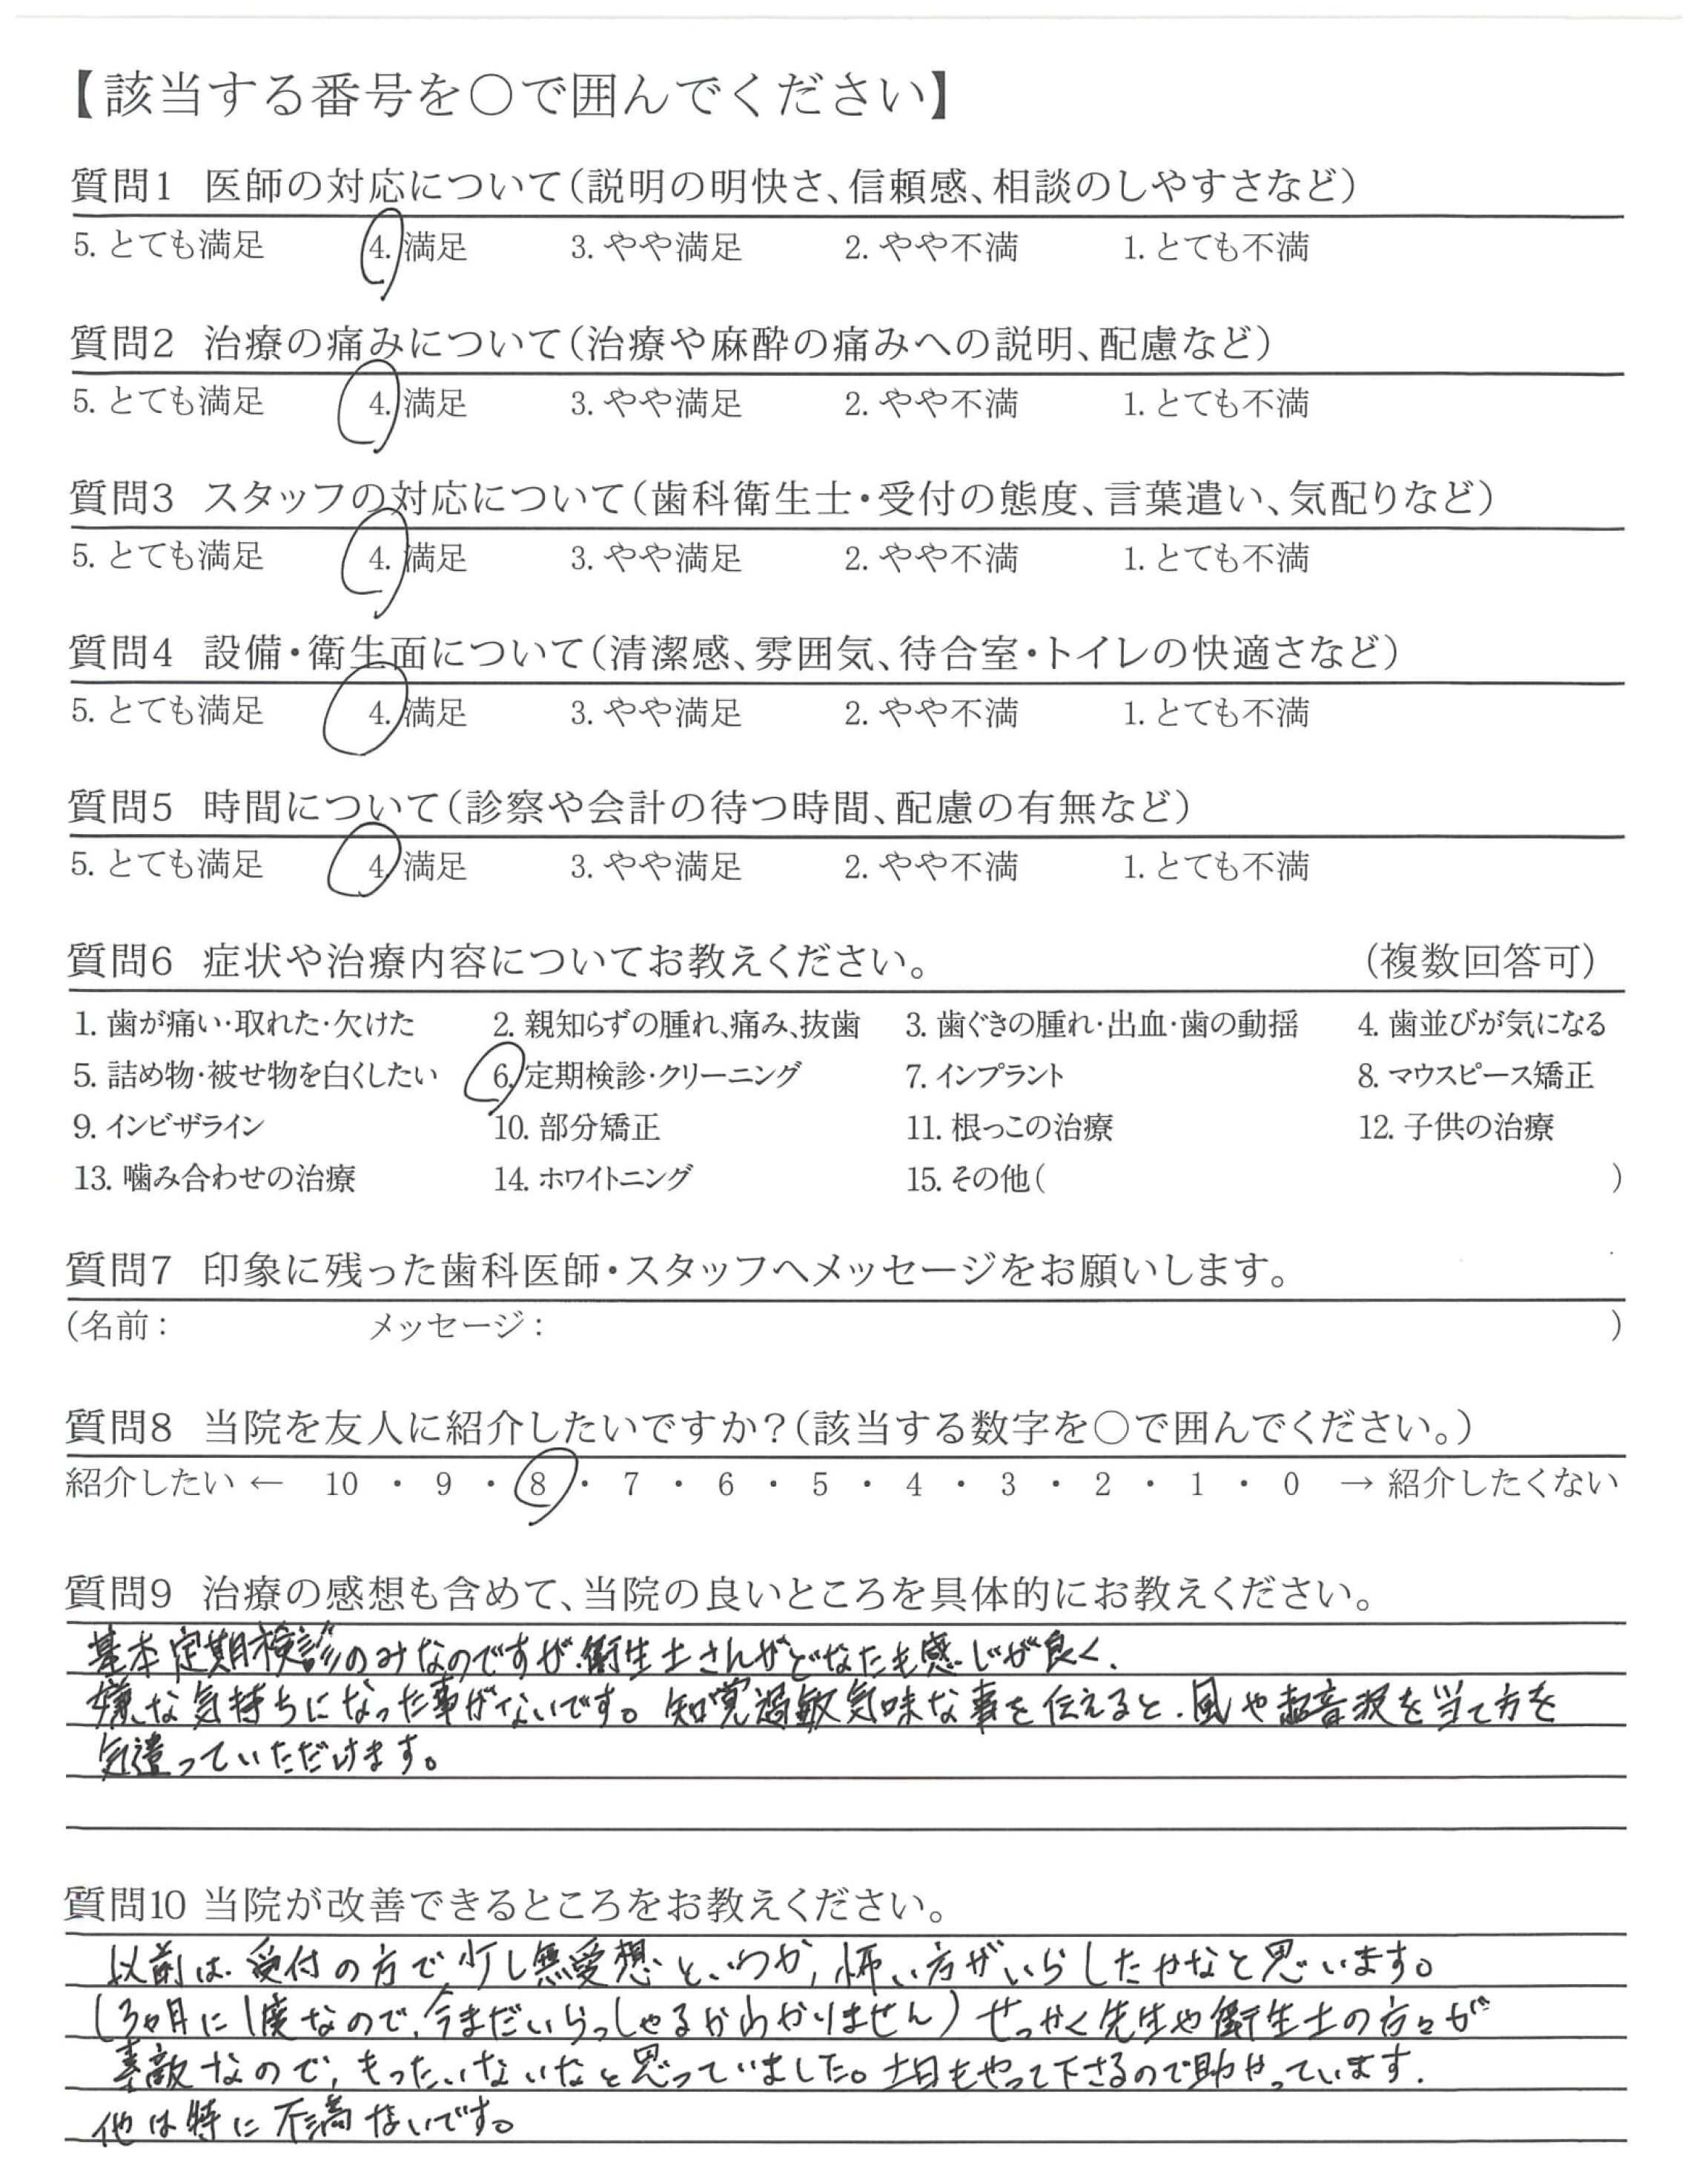 【該当する番号を○で囲んでください】
質問1 医師の対応について(説明の明快さ、信頼感、相談のしやすさなど)
5. とても満足 4. 満足 3. やや満足 2. やや不満 1. とても不満
質問2 治療の痛みについて(治療や麻酔の痛みへの説明、配慮など)
5. とても満足 4. 満足 3. やや満足 2. やや不満 1. とても不満
質問3 スタッフの対応について(歯科衛生士・受付の態度、言葉遣い、気配りなど)
5. とても満足 4. 満足 3. やや満足 2. やや不満 1. とても不満
質問4 設備・衛生面について(清潔感、雰囲気、待合室・トイレの快適さなど)
5. とても満足 4. 満足 3. やや満足 2. やや不満 1. とても不満
質問5 時間について(診察や会計の待つ時間、配慮の有無など)
5. とても満足 4. 満足 3. やや満足 2. やや不満 1. とても不満
質問6 症状や治療内容についてお教えください。 (複数回答可)
1. 歯が痛い・取れた・欠けた 2. 親知らずの腫れ、痛み、抜歯 3. 歯ぐきの腫れ・出血・歯の動揺 4. 歯並びが気になる
5. 詰め物・被せ物を白くしたい 6. 定期検診・クリーニング 7. インプラント 8. マウスピース矯正
9. インビザライン 10. 部分矯正 11. 根っこの治療 12. 子供の治療
13. 噛み合わせの治療 14. ホワイトニング 15. その他( )
質問7 印象に残った歯科医師・スタッフへメッセージをお願いします。
(名前: メッセージ: )
質問8 当院を友人に紹介したいですか?(該当する数字を○で囲んでください。)
紹介したい ← 10 ・ 9 ・ 8 ・ 7 ・ 6 ・ 5 ・ 4 ・ 3 ・ 2 ・ 1 ・ 0 → 紹介したくない
質問9 治療の感想も含めて、当院の良いところを具体的にお教えください。
基本定期検診のみなのですが、衛生士さんがどなたも感じが良く、
嫌な気持ちになった事がないです。知覚過敏気味な事を伝えると、風や超音波を当て方を
気遣っていただけます。
質問10 当院が改善できるところをお教えください。
以前は、受付の方で、少し無愛想というか、怖い方がいらしたかなと思います。
(3ヶ月に1度なので、今まだいらっしゃるかわかりません)せっかく先生や衛生士の方々が
素敵なので、もったいないなと思っていました。土日もやって下さるので助かっています。
他は特に不満ないです。